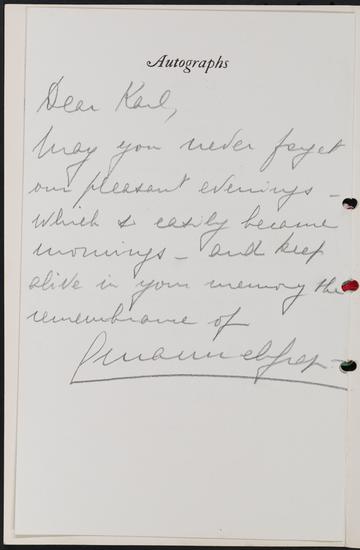 Autographs
Dear Karl,
May you never forget
our pleasant evenings –
which so easily became
mornings – and keep
alive in your memory the
remembrance of